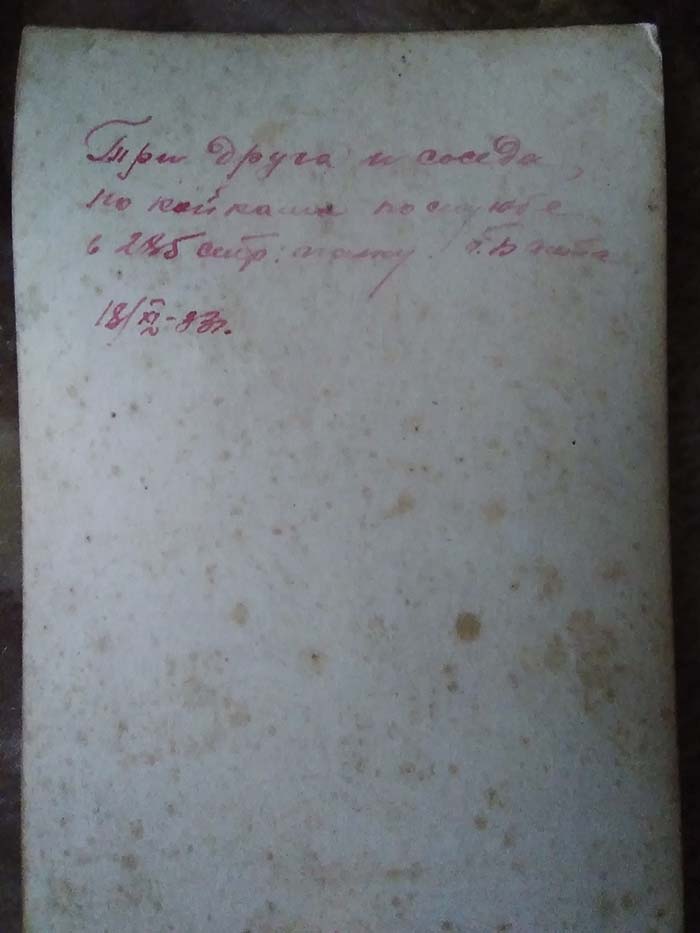 Три друга и соседа,
по койкам по службе
в 285 стр. полку.
18/XII-33г.